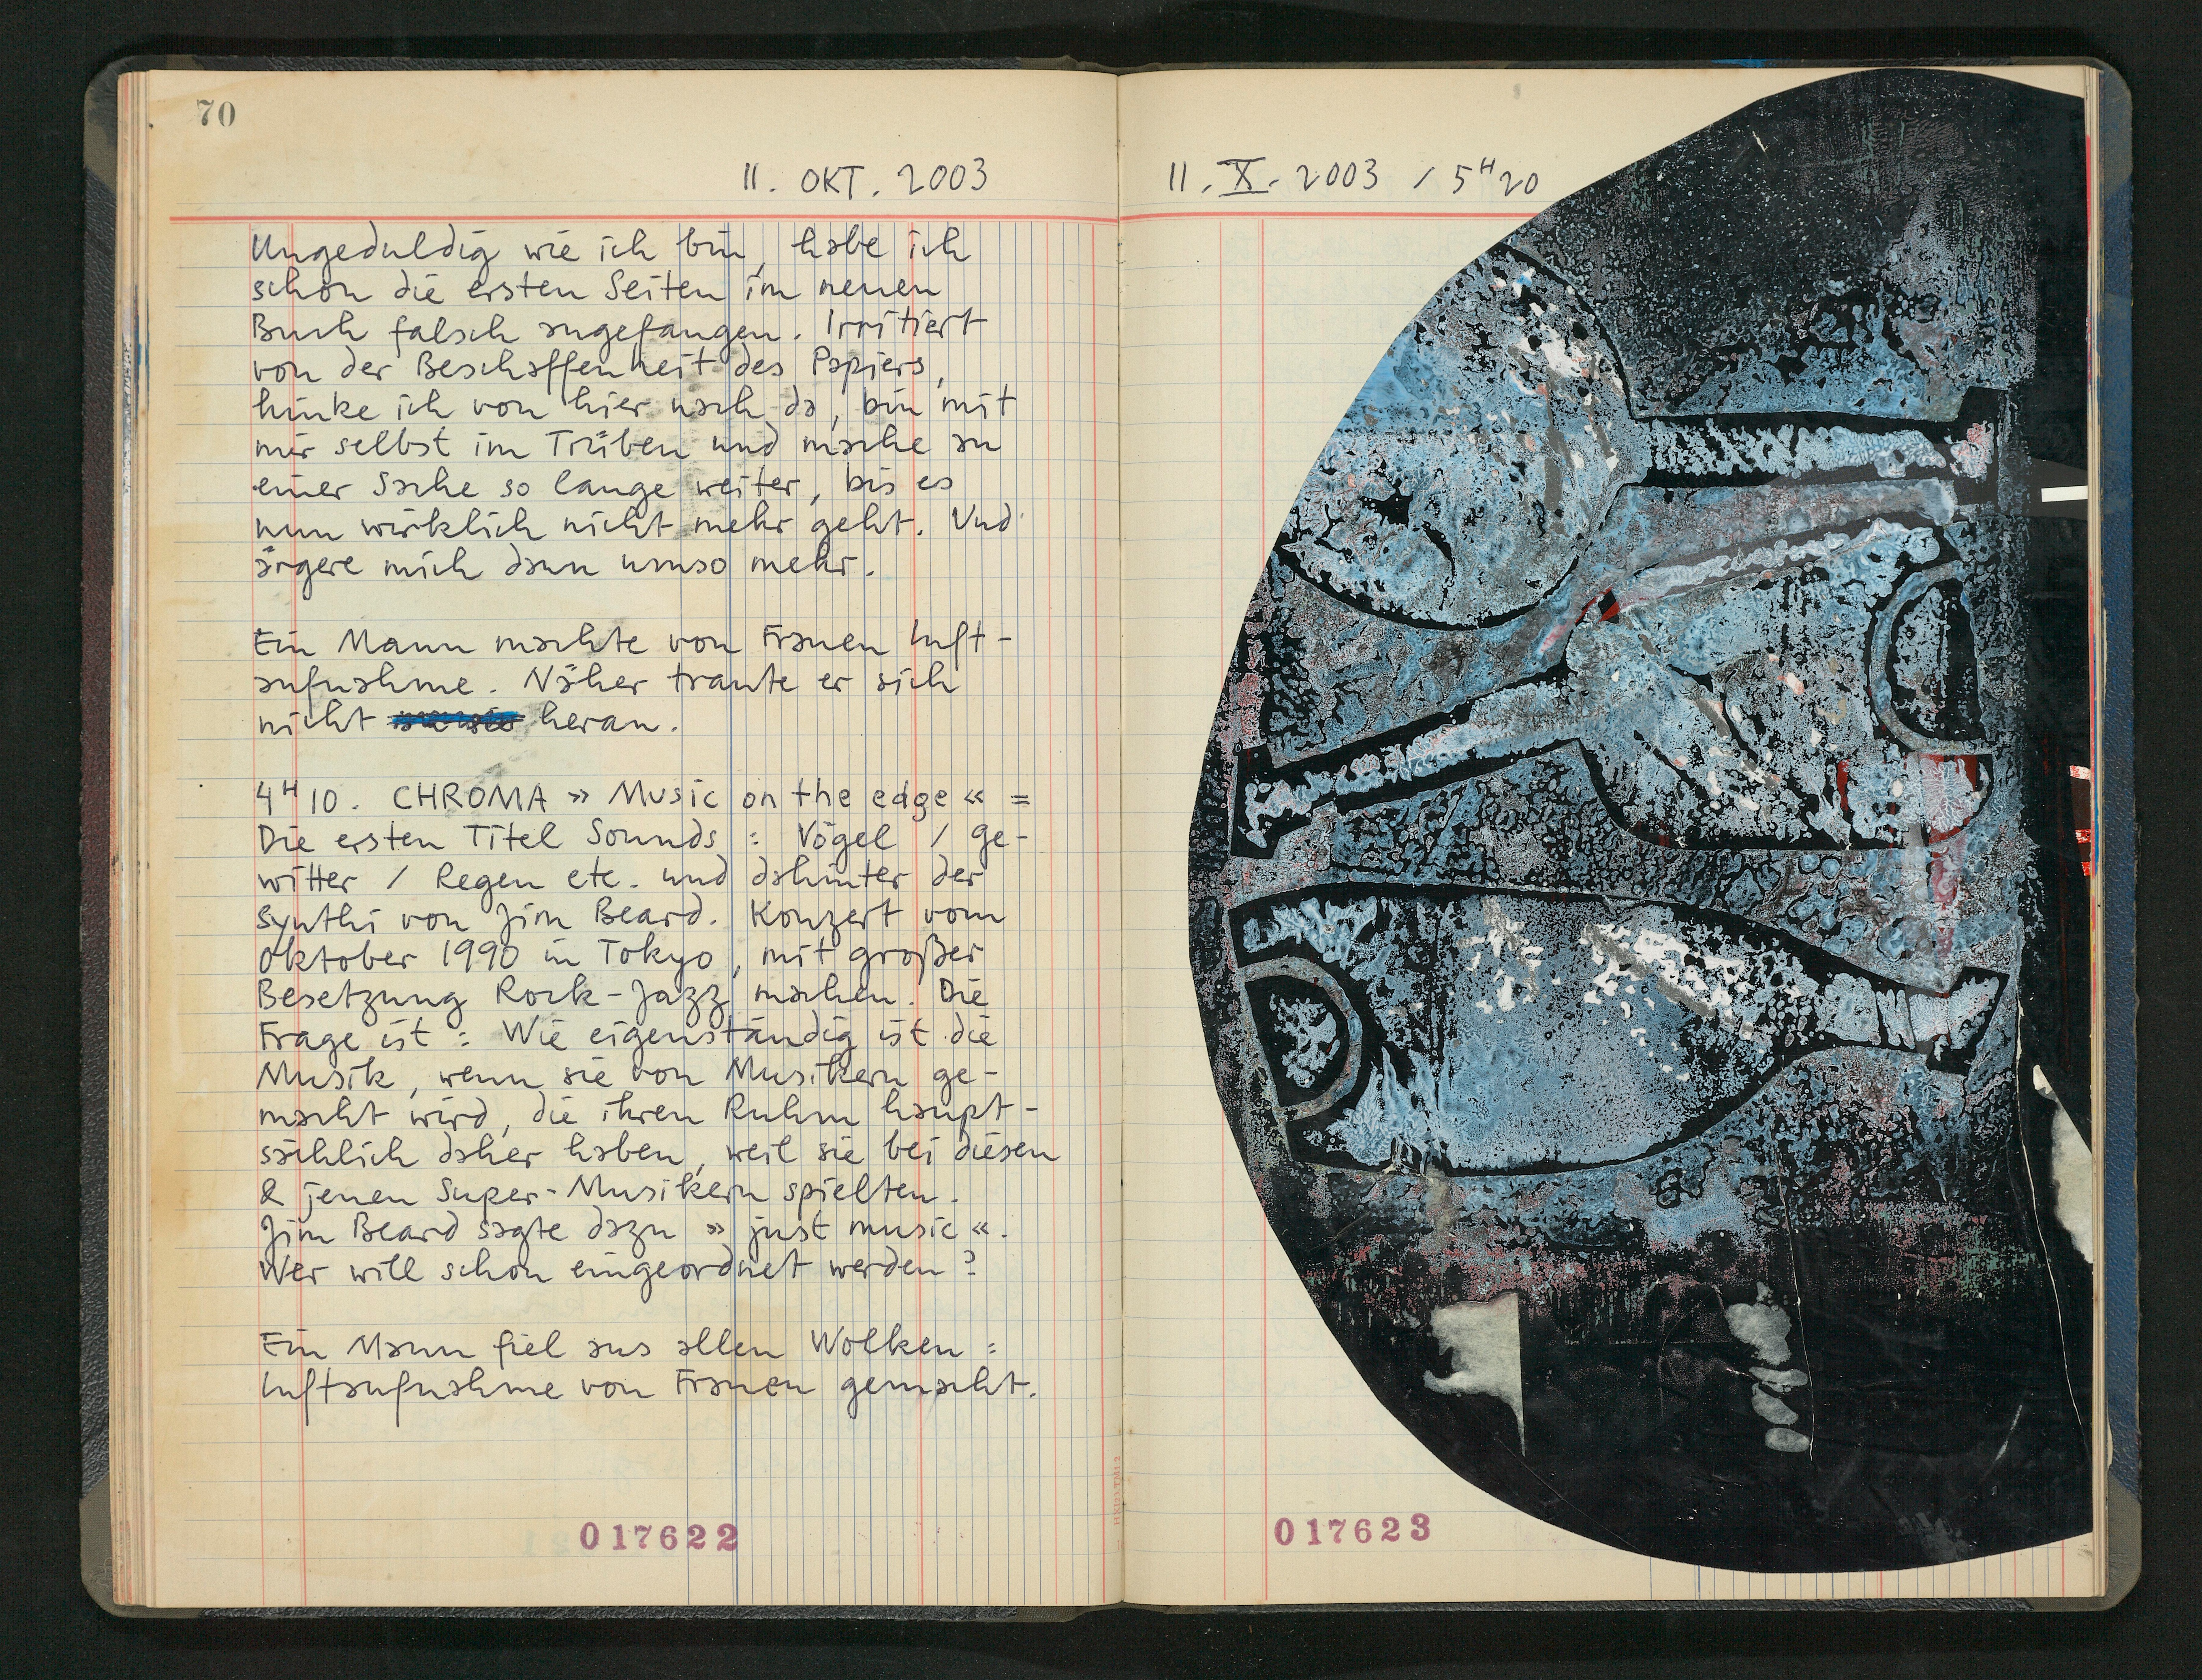 70
11. OKT. 2003
Ungeduldig wie ich bin, habe ich
schon die ersten Seiten im neuen
Buch falsch angefangen. Irritiert
von der Beschaffenheit des Papiers,
hinke ich von hier nach da, bin mit
mir selbst im Trüben und mache an
einer Sache so lange weiter, bis es
nun wirklich nicht mehr geht. Und
ärgere mich dann umso mehr.
Ein Mann machte von Frauen Luft-
aufnahme. Näher traute er sich
nicht heran.
4H10. CHROMA » Music on the edge « =
Die ersten Titel Sounds : Vögel / Ge-
witter / Regen etc. und dahinter der
Synthi von Jim Beard. Konzert vom
Oktober 1990 in Tokyo, mit großer
Besetzung Rock-Jazz machen. Die
Frage ist : Wie eigenständig ist die
Musik, wenn sie von Musikern ge-
macht wird, die ihren Ruhm haupt-
sächlich daher haben, weil sie bei diesen
& jenen Super-Musikern spielten.
Jim Beard sagte dazu » just music «.
Wer will schon eingeordnet werden?
Ein Mann fiel aus allen Wolken :
Luftaufnahme von Frauen gemacht.
017622
11. X. 2003 / 5H20
017623